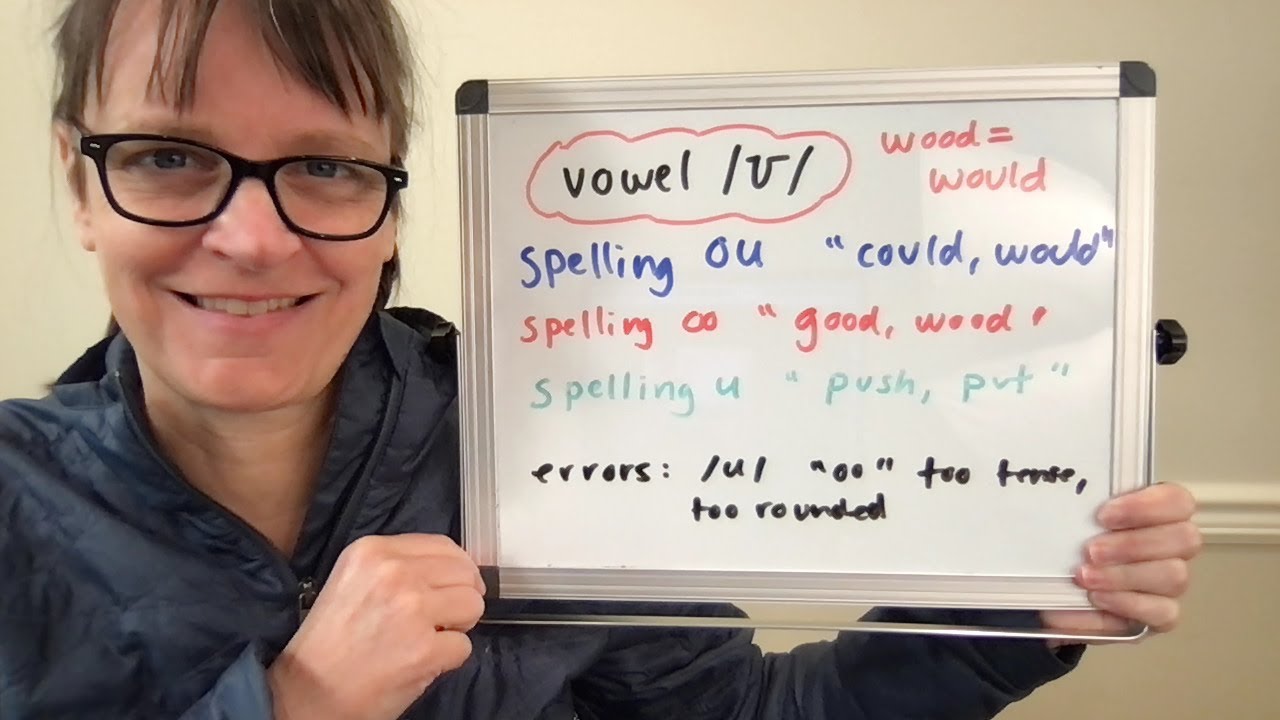 vowel /ʊ/
wood =
would
spelling ou "could, would"
spelling oo "good, wood"
spelling u "push, put"
errors: /u/ "oo" too tense,
too rounded